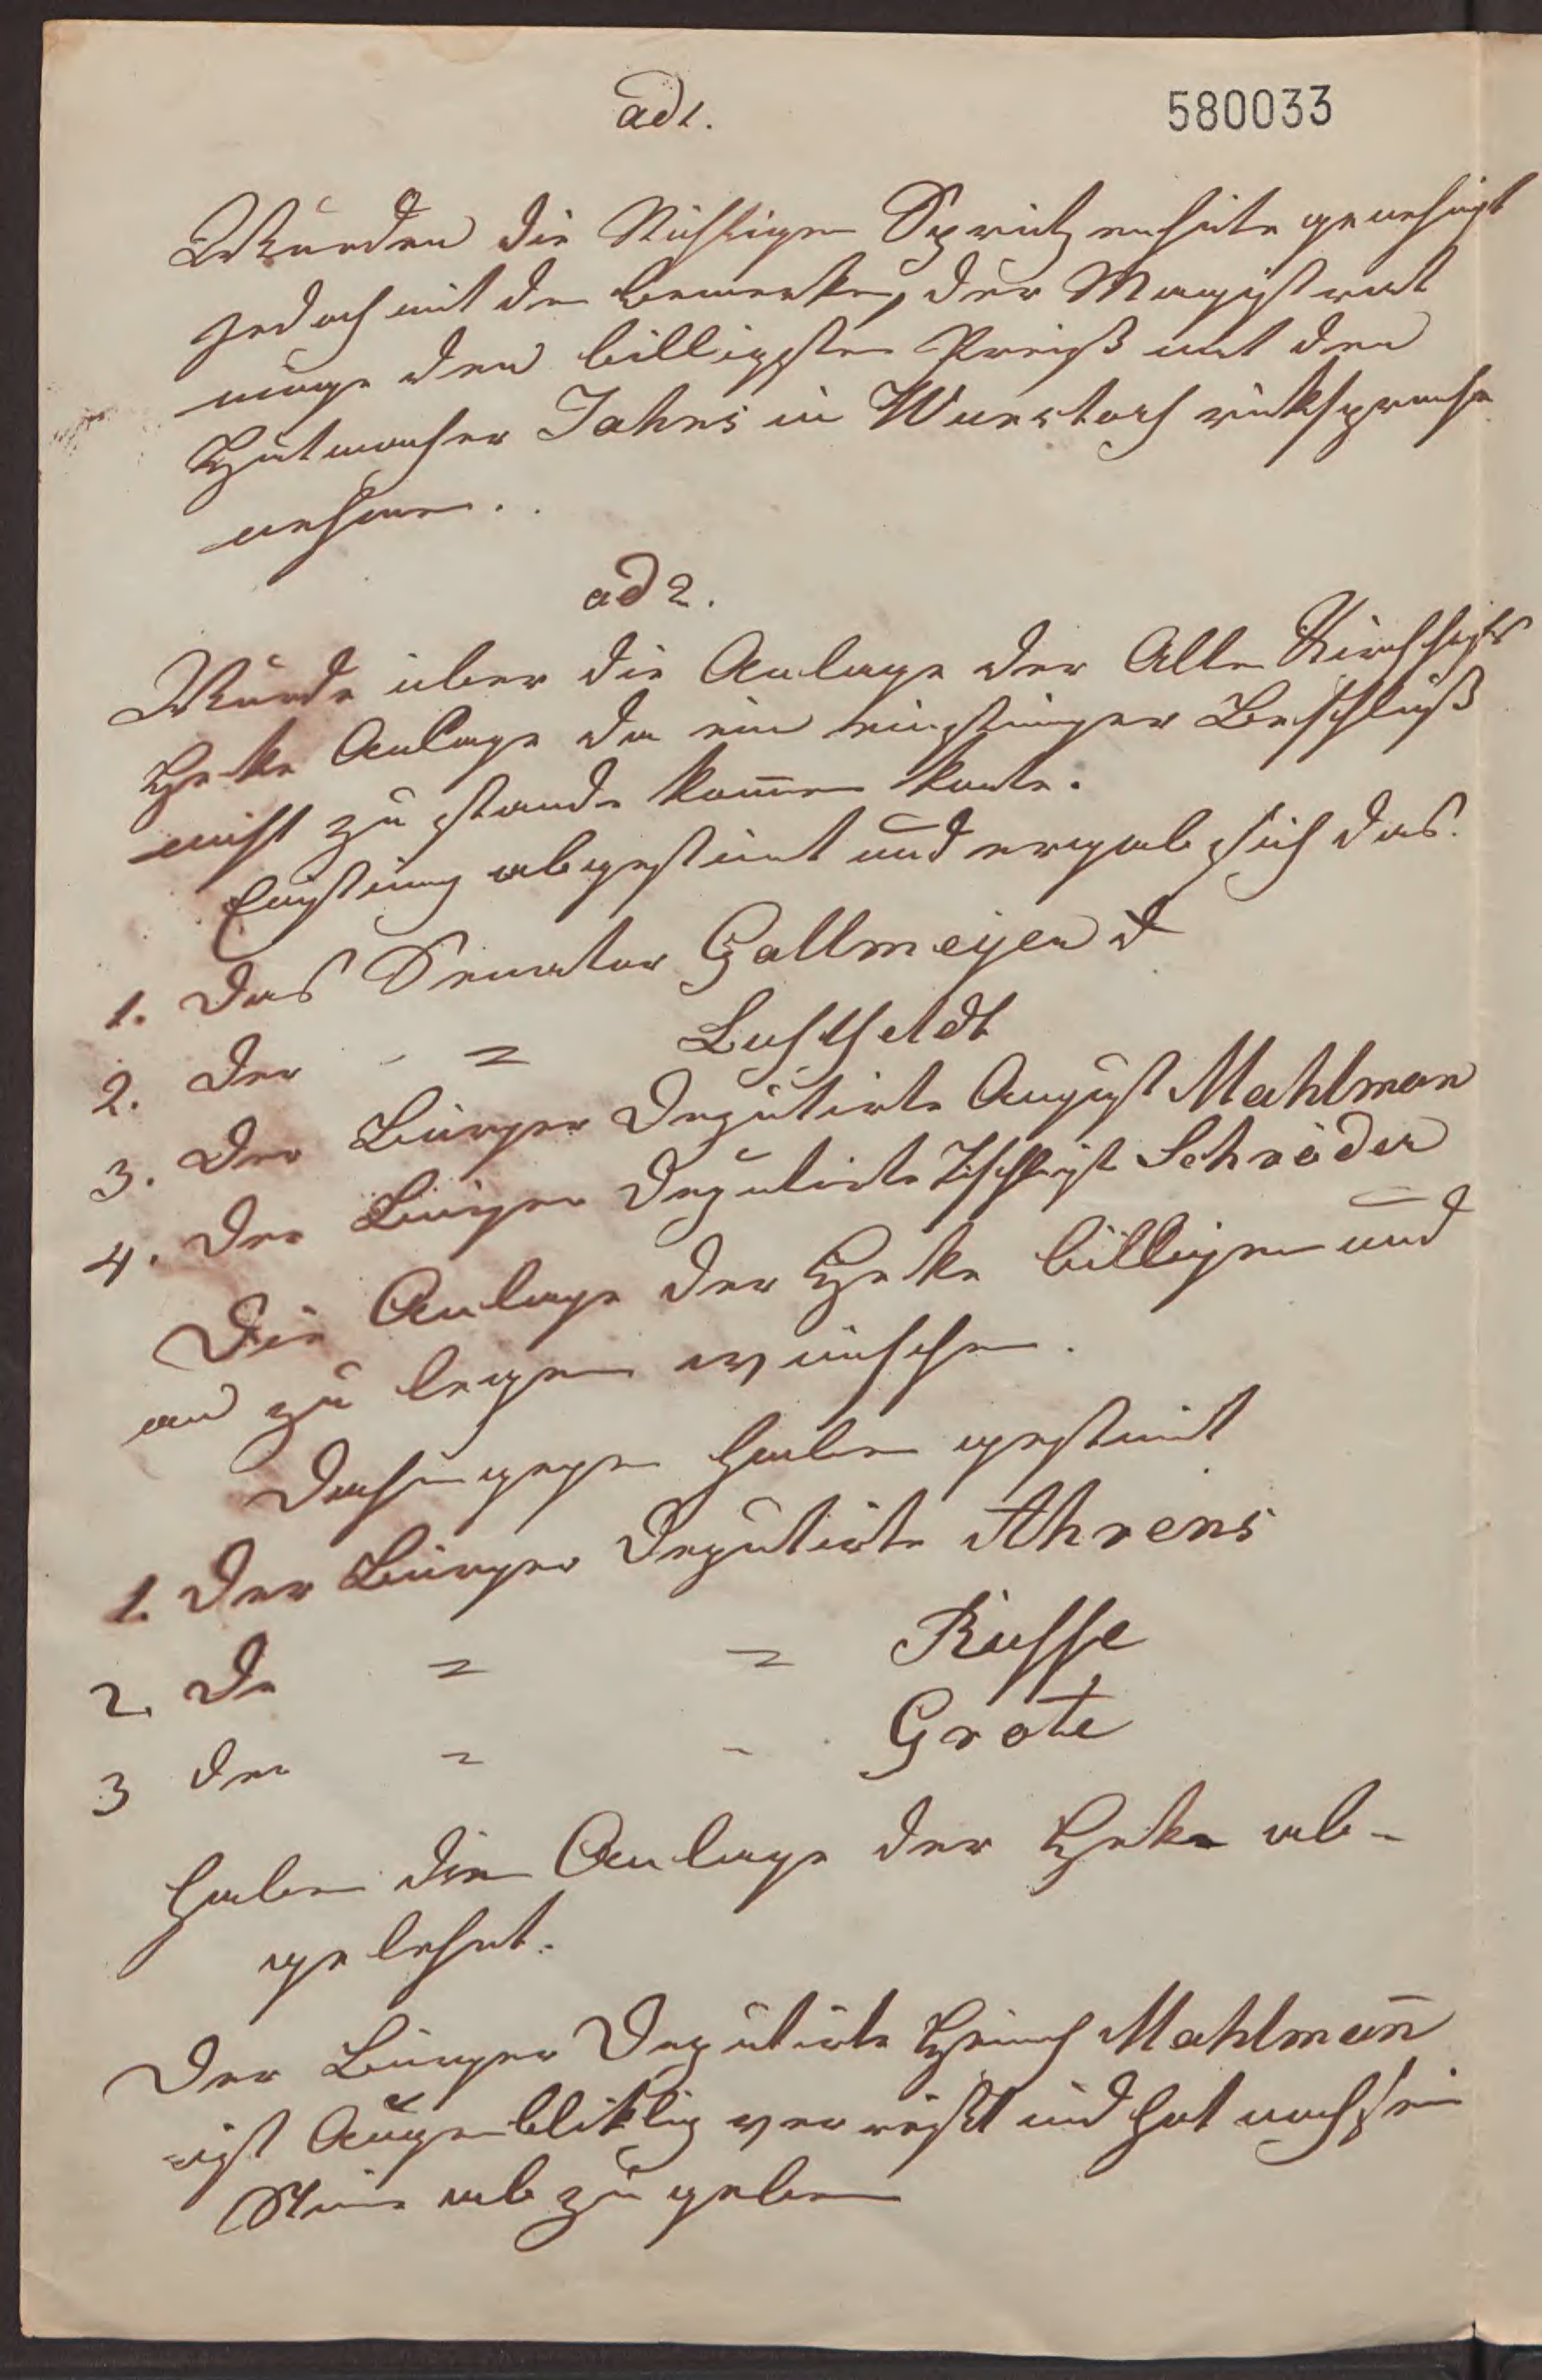 ad 1.
580033
Wurden die Nöthigen Spritzenhüte genehmigt
jedoch mit den bemerken, der Magistrat
möge den billigsten Preiß mit den
Hutmacher Jahns in Wunstorf rüksprache
nehmen.
ad 2.
Wurde über die Anlage der Alten Kirchhofs
Heke Anlage da ein einstimger Beschluß
nicht zu stande kommen konte.
abgestimt und ergab sich das
1. Das Senator Gallmeyer d
2. Der " Luhtfeldt
3. Der Bürger Deputirte August Mahlman
4. Der Bürger Deputirte Schröder
Die Anlage der Heke billigen und
an zu legen wünschen.
Dahingegen haben gestimt
1. Der Bürger Deputirte Ahrens
2. De " " Kuhse
3 der " " Grote
haben die Anlage der Heke ab-
gelehnt.
Der Bürger Deputirte Heinrich Mahlmann
ist Augenbliklig verreißt und hat noch sein
Stime ab zu geben